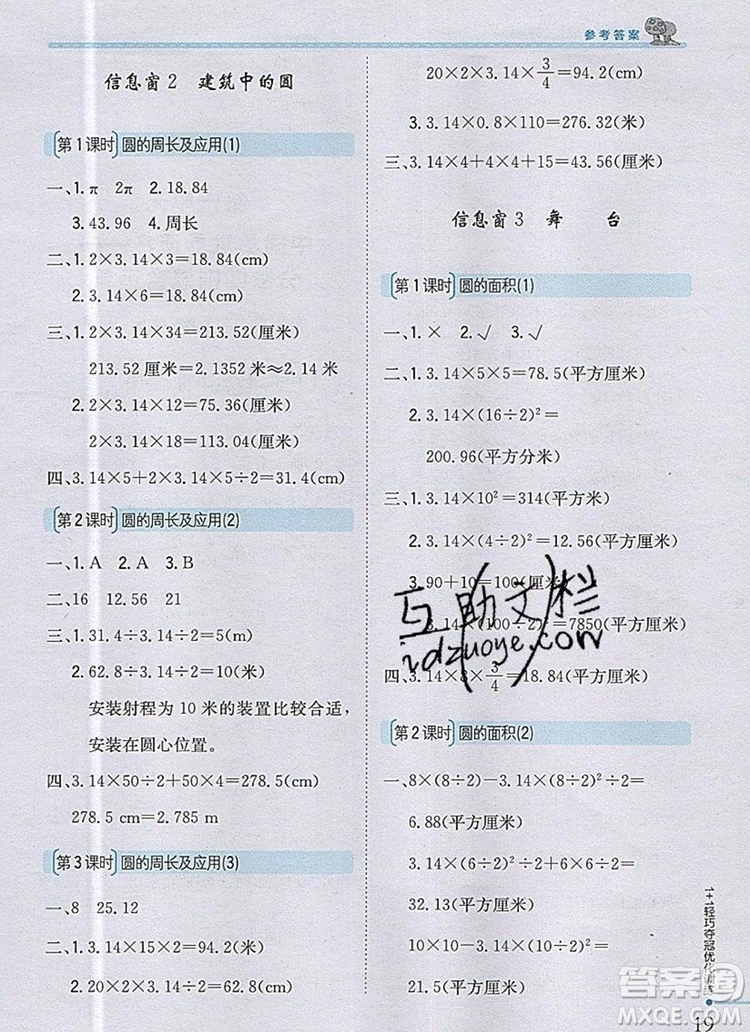 参考答案
信息窗2 建筑中的圆
第1课时 圆的周长及应用(1)
一、1.π 2π 2.18.84
3.43.96 4.周长
二、1.2×3.14×3=18.84(厘米)
2.3.14×6=18.84(厘米)
三、1.2×3.14×34=213.52(厘米)
213.52厘米=2.1352米≈2.14米
2.2×3.14×12=75.36(厘米)
2×3.14×18=113.04(厘米)
四、3.14×5+2×3.14×5÷2=31.4(cm)
第2课时 圆的周长及应用(2)
一、1.A 2.A 3.B
二、16 12.56 21
三、1.31.4÷3.14÷2=5(m)
2.62.8÷3.14÷2=10(米)
安装射程为10米的装置比较合适,
安装在圆心位置。
四、3.14×50÷2+50×4=278.5(cm)
278.5 cm=2.785 m
第3课时 圆的周长及应用(3)
一、8 25.12
二、1.3.14×15×2=94.2(米)
2.20×2×3.14÷2=62.8(cm)
20×2×3.14×3/4=94.2(cm)
3.3.14×0.8×110=276.32(米)
三、3.14×4+4×4+15=43.56(米)
信息窗3 舞 台
第1课时 圆的面积(1)
一、1.× 2.√ 3.√
二、1.3.14×5×5=78.5(平方厘米)
2.3.14×(16÷2)²=
200.96(平方分米)
三、1.3.14×10²=314(平方米)
2.3.14×(4÷2)²=12.56(平方米)
3.90+10=100(厘米)
3.14×(100÷2)²=7850(平方厘米)
四、3.14×8×3/4=18.84(米)
第2课时 圆的面积(2)
一、8×(8÷2)-3.14×(8÷2)²÷2=
6.88(平方厘米)
3.14×(6÷2)²÷2+6×3=
32.13(平方厘米)
10×10-3.14×(10÷2)²=
21.5(平方厘米)
互助文栏
idzuoye.com
1+1轻巧夺冠优化训练
答案圈
MXQE.COM
19